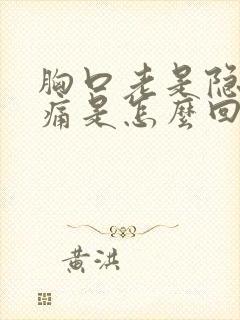 胸口老是隐
痛是怎麼回
黄洪